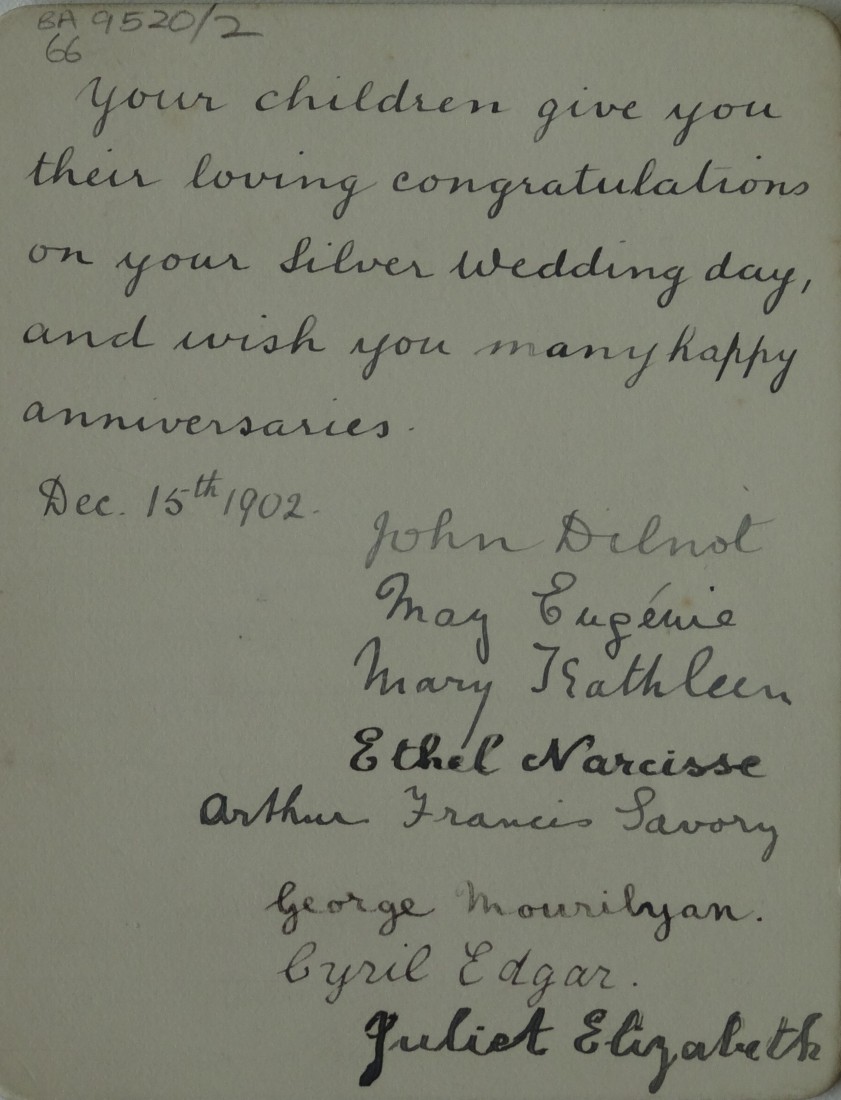 BA 9520/2
66
Your children give you
their loving congratulations
on your Silver Wedding day,
and wish you many happy
anniversaries.
Dec. 15th 1902.
John Dilnot
May Eugénie
Mary Kathleen
Ethel Narcisse
Arthur Francis Savory
George Mourilyan.
Cyril Edgar.
Juliet Elizabeth